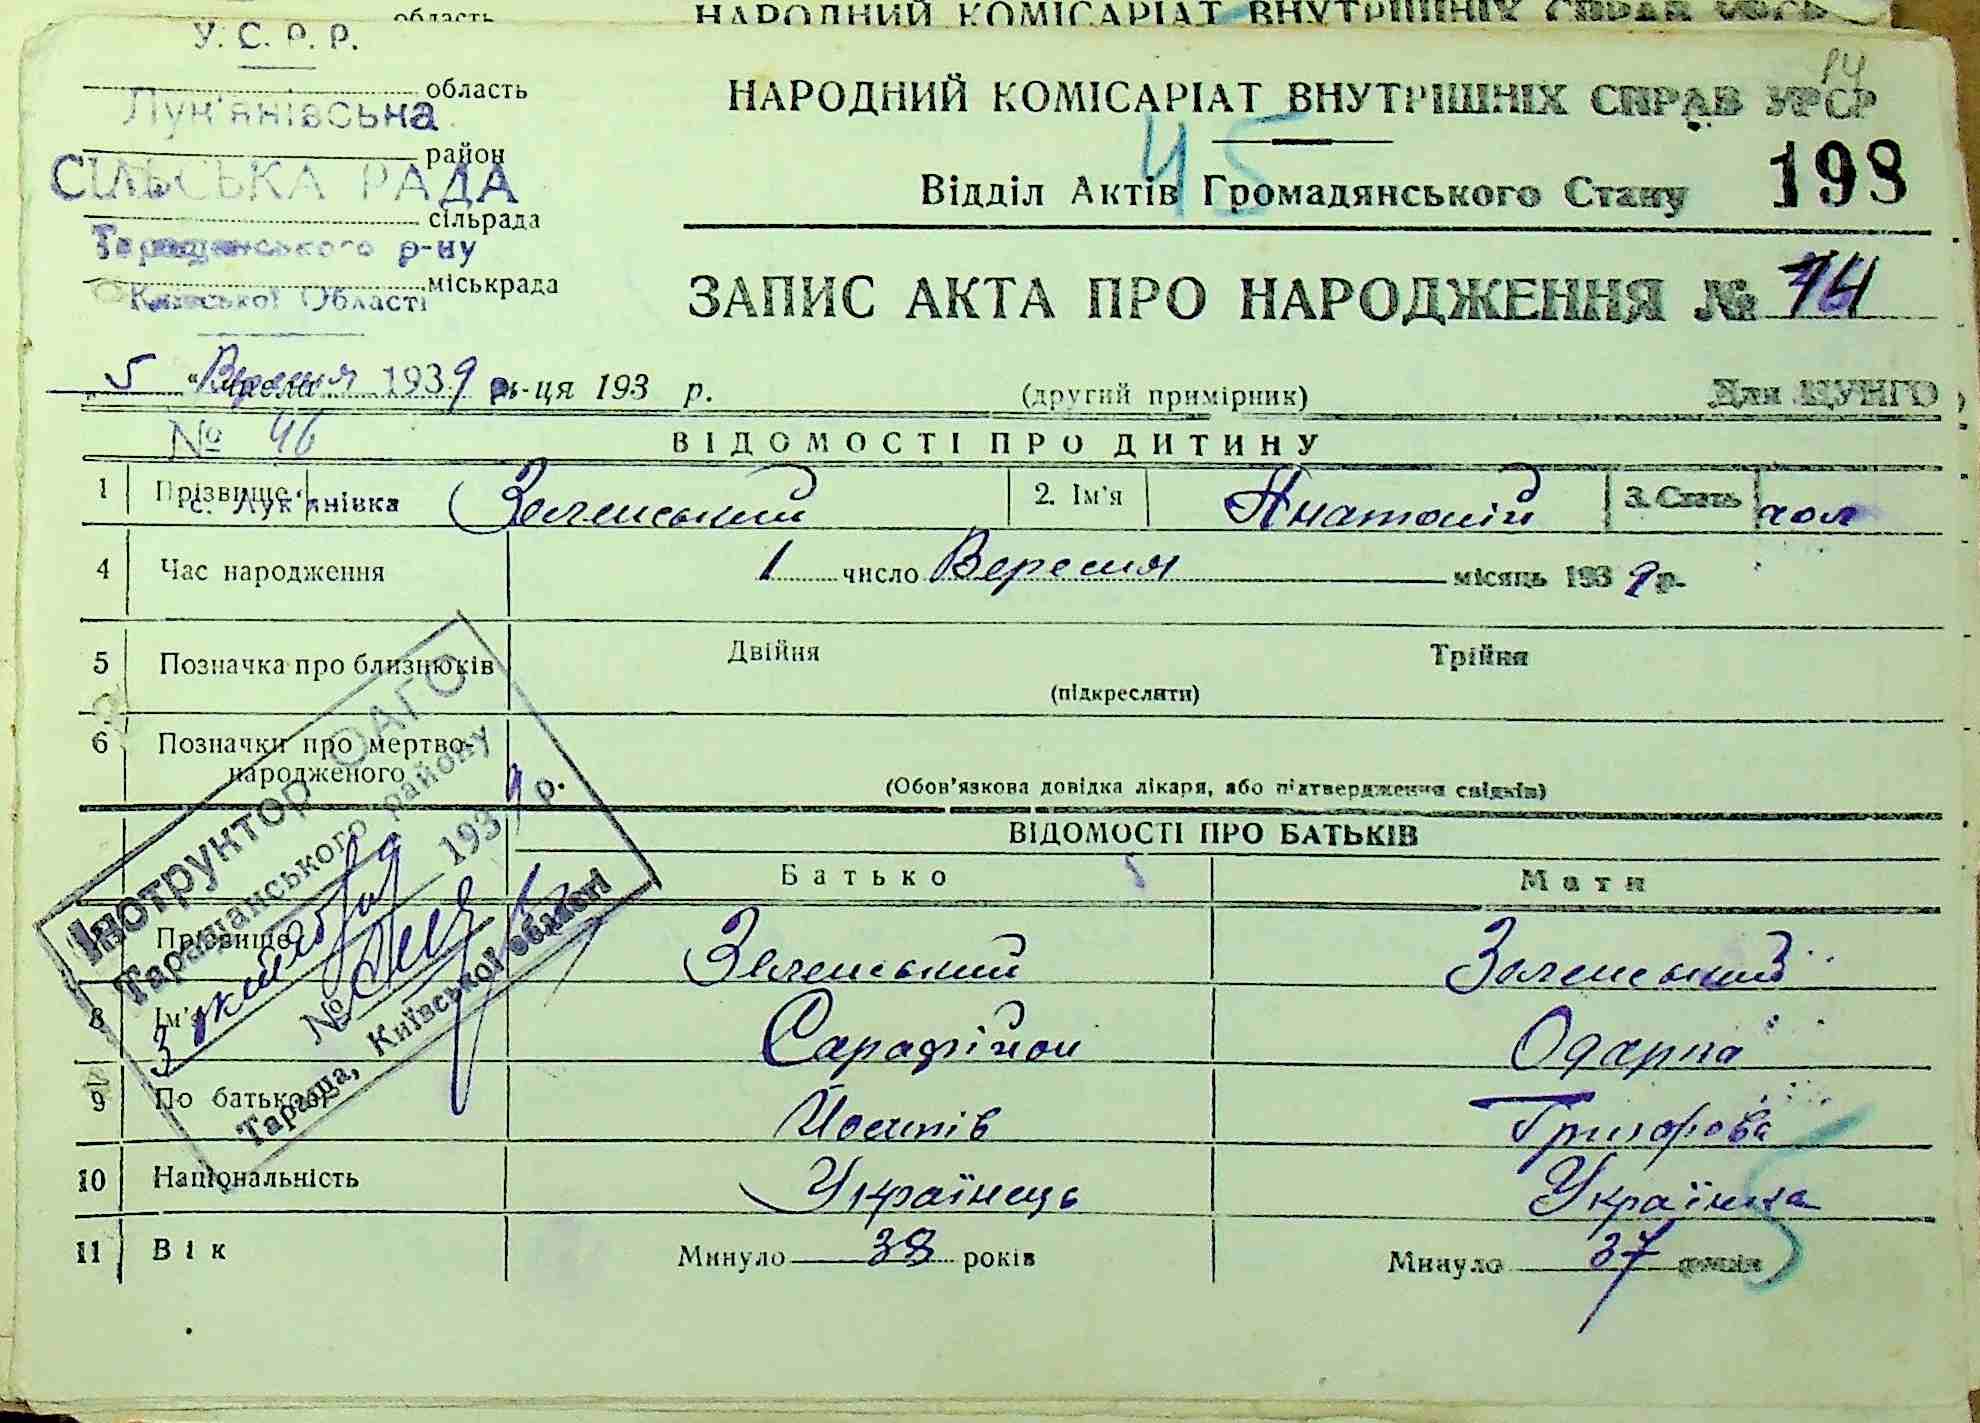 область НАРОДНИЙ КОМІСАРІАТ ВНУТРІШНІХ СПРАВ УРСР
У. С. Р. Р.
область
Лук'янівська
район
СІЛЬСЬКА РАДА
сільрада
Таращанського р-ну
міськрада
Київської Області
НАРОДНИЙ КОМІСАРІАТ ВНУТРІШНІХ СПРАВ УРСР
45
Відділ Актів Громадянського Стану 198
ЗАПИС АКТА ПРО НАРОДЖЕННЯ №
5 Вересня 1939 р. м-ця 193 р. (другий примірник) Для ЦУНГО
№ 46
ВІДОМОСТІ ПРО ДИТИНУ
1 Прізвище Зеленський 2. Ім'я Анатолій 3. Стать чол
с. Лук'янівка
4 Час народження 1 число Вересня місяць 1939 р.
5 Позначка про близнюків Двійня Трійня
(підкреслити)
6 Позначки про мертво-
народженого
(Обов'язкова довідка лікаря, або підтвердження свідків)
ВІДОМОСТІ ПРО БАТЬКІВ
Батько Мати
Прізвище Зеленський Зеленський
8 Ім'я Сарафійон Одарка
9 По батькові Йосипів Григорова
10 Національність Українець Українка
11 Вік Минуло 38 років Минуло 37 років
Інструктор ОАГО
Таращанського району
1939 р.
№
Тараща, Київської області